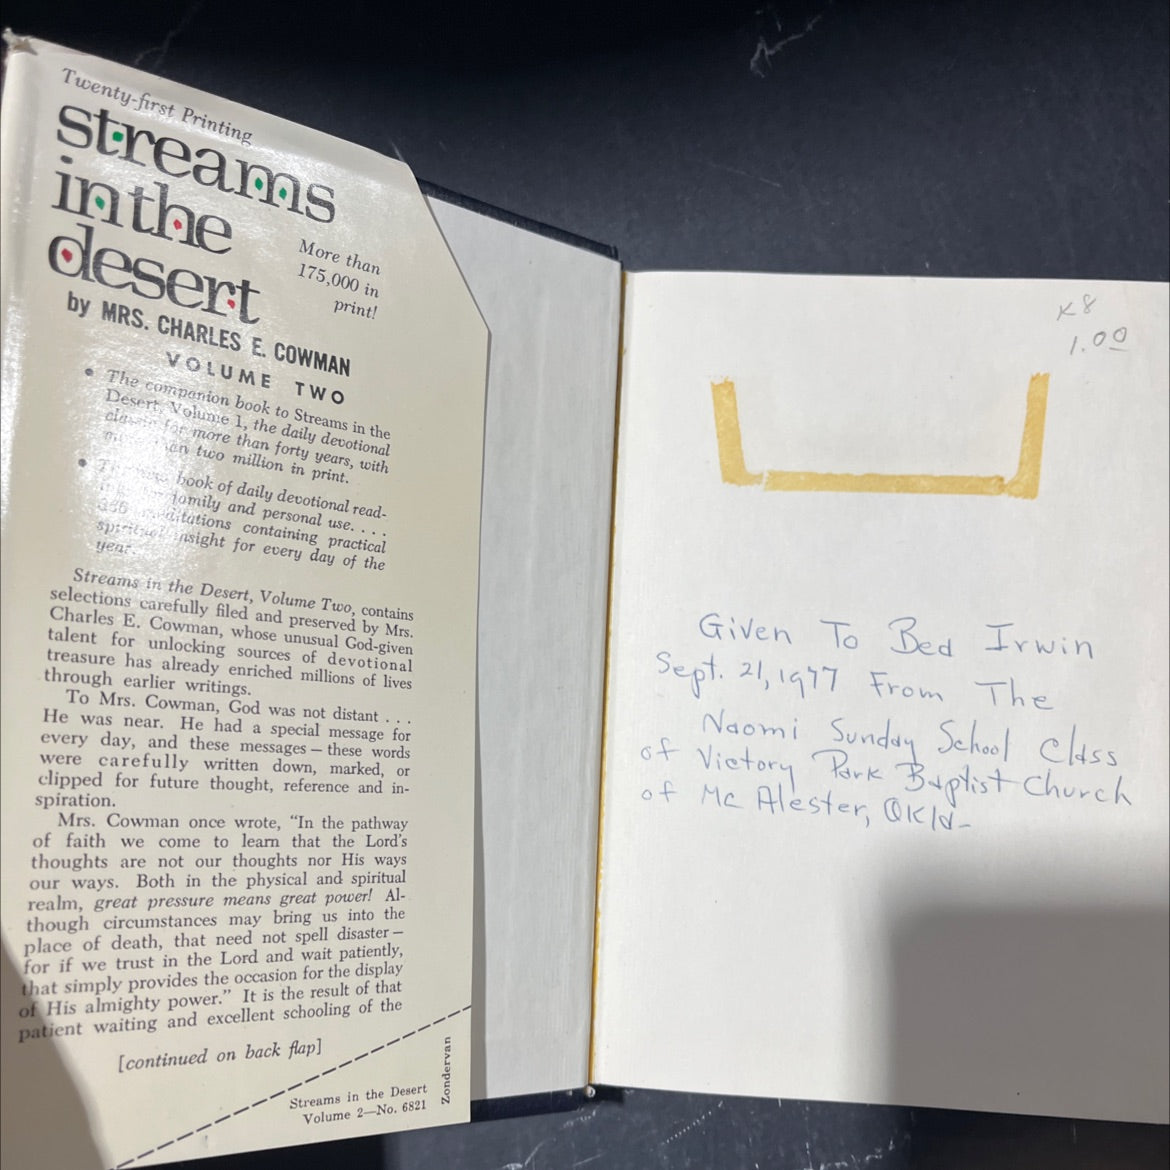 Twenty-first Printing
streams
in the
desert
More than
175,000 in
print!
by MRS. CHARLES E. COWMAN
VOLUME TWO
• The companion book to Streams in the
Desert, Volume 1, the daily devotional
classic for more than forty years, with
more than two million in print.
• book of daily devotional read-
family and personal use. . . .
meditations containing practical
spiritual insight for every day of the
year.
Streams in the Desert, Volume Two, contains
selections carefully filed and preserved by Mrs.
Charles E. Cowman, whose unusual God-given
talent for unlocking sources of devotional
treasure has already enriched millions of lives
through earlier writings.
To Mrs. Cowman, God was not distant . . .
He was near. He had a special message for
every day, and these messages — these words
were carefully written down, marked, or
clipped for future thought, reference and in-
spiration.
Mrs. Cowman once wrote, “In the pathway
of faith we come to learn that the Lord's
thoughts are not our thoughts nor His ways
our ways. Both in the physical and spiritual
realm, great pressure means great power! Al-
though circumstances may bring us into the
place of death, that need not spell disaster —
for if we trust in the Lord and wait patiently,
that simply provides the occasion for the display
of His almighty power.” It is the result of that
patient waiting and excellent schooling of the
[continued on back flap]
Streams in the Desert
Volume 2—No. 6821
Zondervan
K8
1.00
Given To Bed Irwin
Sept. 21, 1977 From The
Naomi Sunday School Class
of Victory Park Baptist Church
of Mc Alester, Okld-